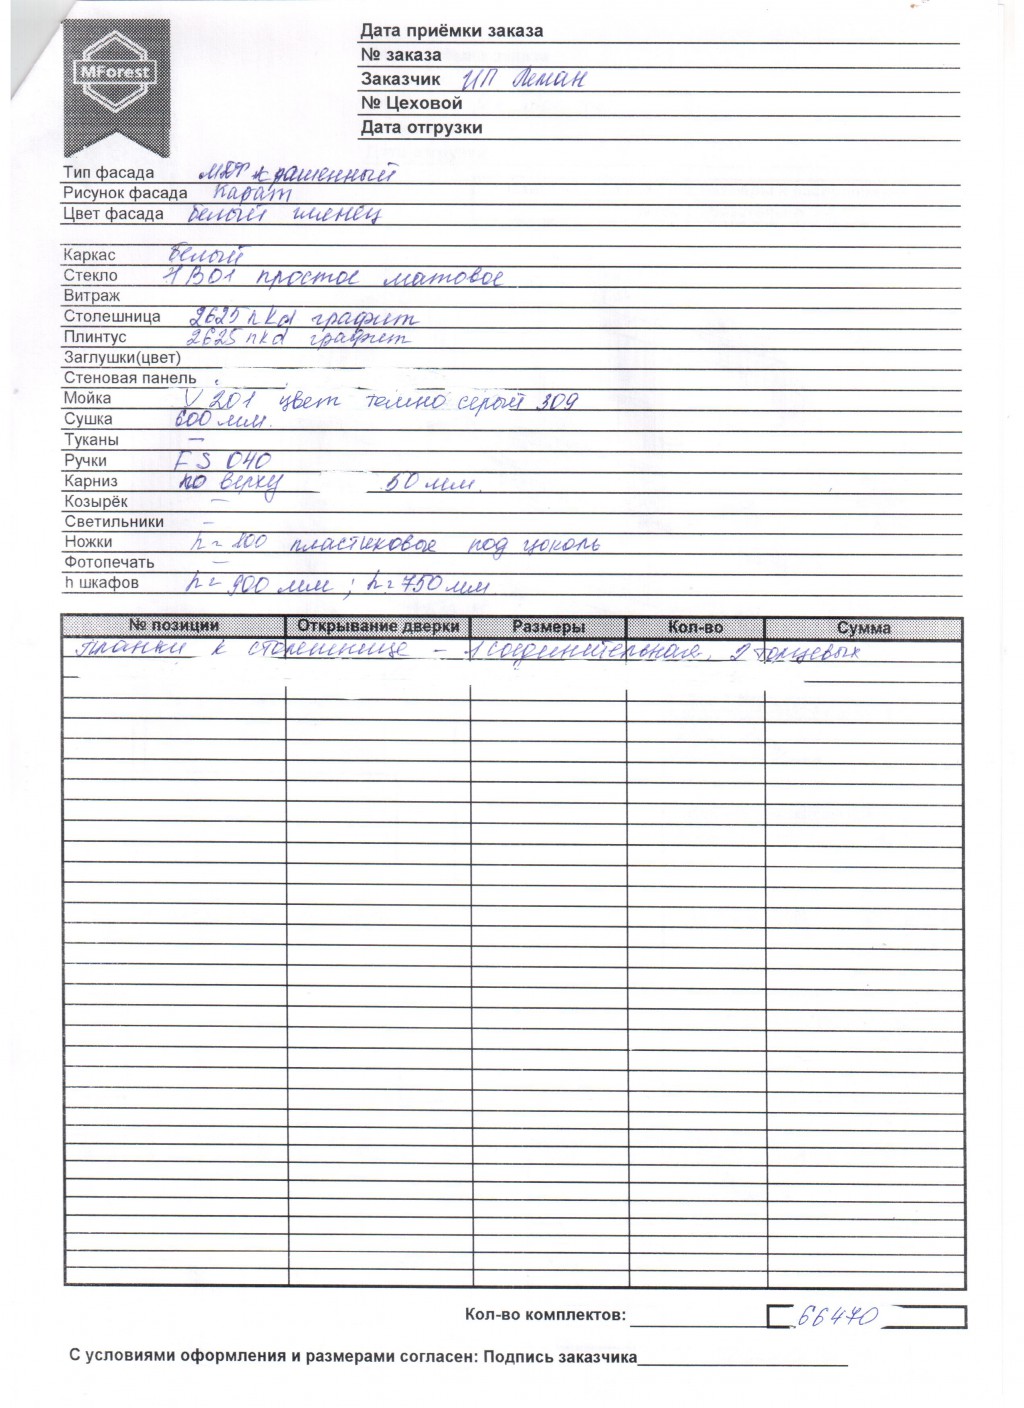 MForest
Дата приёмки заказа
№ заказа
Заказчик ИП Леман
№ Цеховой
Дата отгрузки
Тип фасада МДФ крашенный
Рисунок фасада Карат
Цвет фасада белый глянец
Каркас белый
Стекло 1В01 простое матовое
Витраж
Столешница 2625 nkd графит
Плинтус 2625 nkd графит
Заглушки(цвет)
Стеновая панель
Мойка V 201 цвет темно серый 309
Сушка 600 мм.
Туканы —
Ручки FS 040
Карниз по верху 50 мм.
Козырёк —
Светильники —
Ножки h = 100 пластиковое под цоколь
Фотопечать —
h шкафов h = 900 мм ; h = 750 мм
№ позиции Открывание дверки Размеры Кол-во Сумма
Планки к столешнице - 1 соединительная, 2 торцевых
Кол-во комплектов: 66470
С условиями оформления и размерами согласен: Подпись заказчика